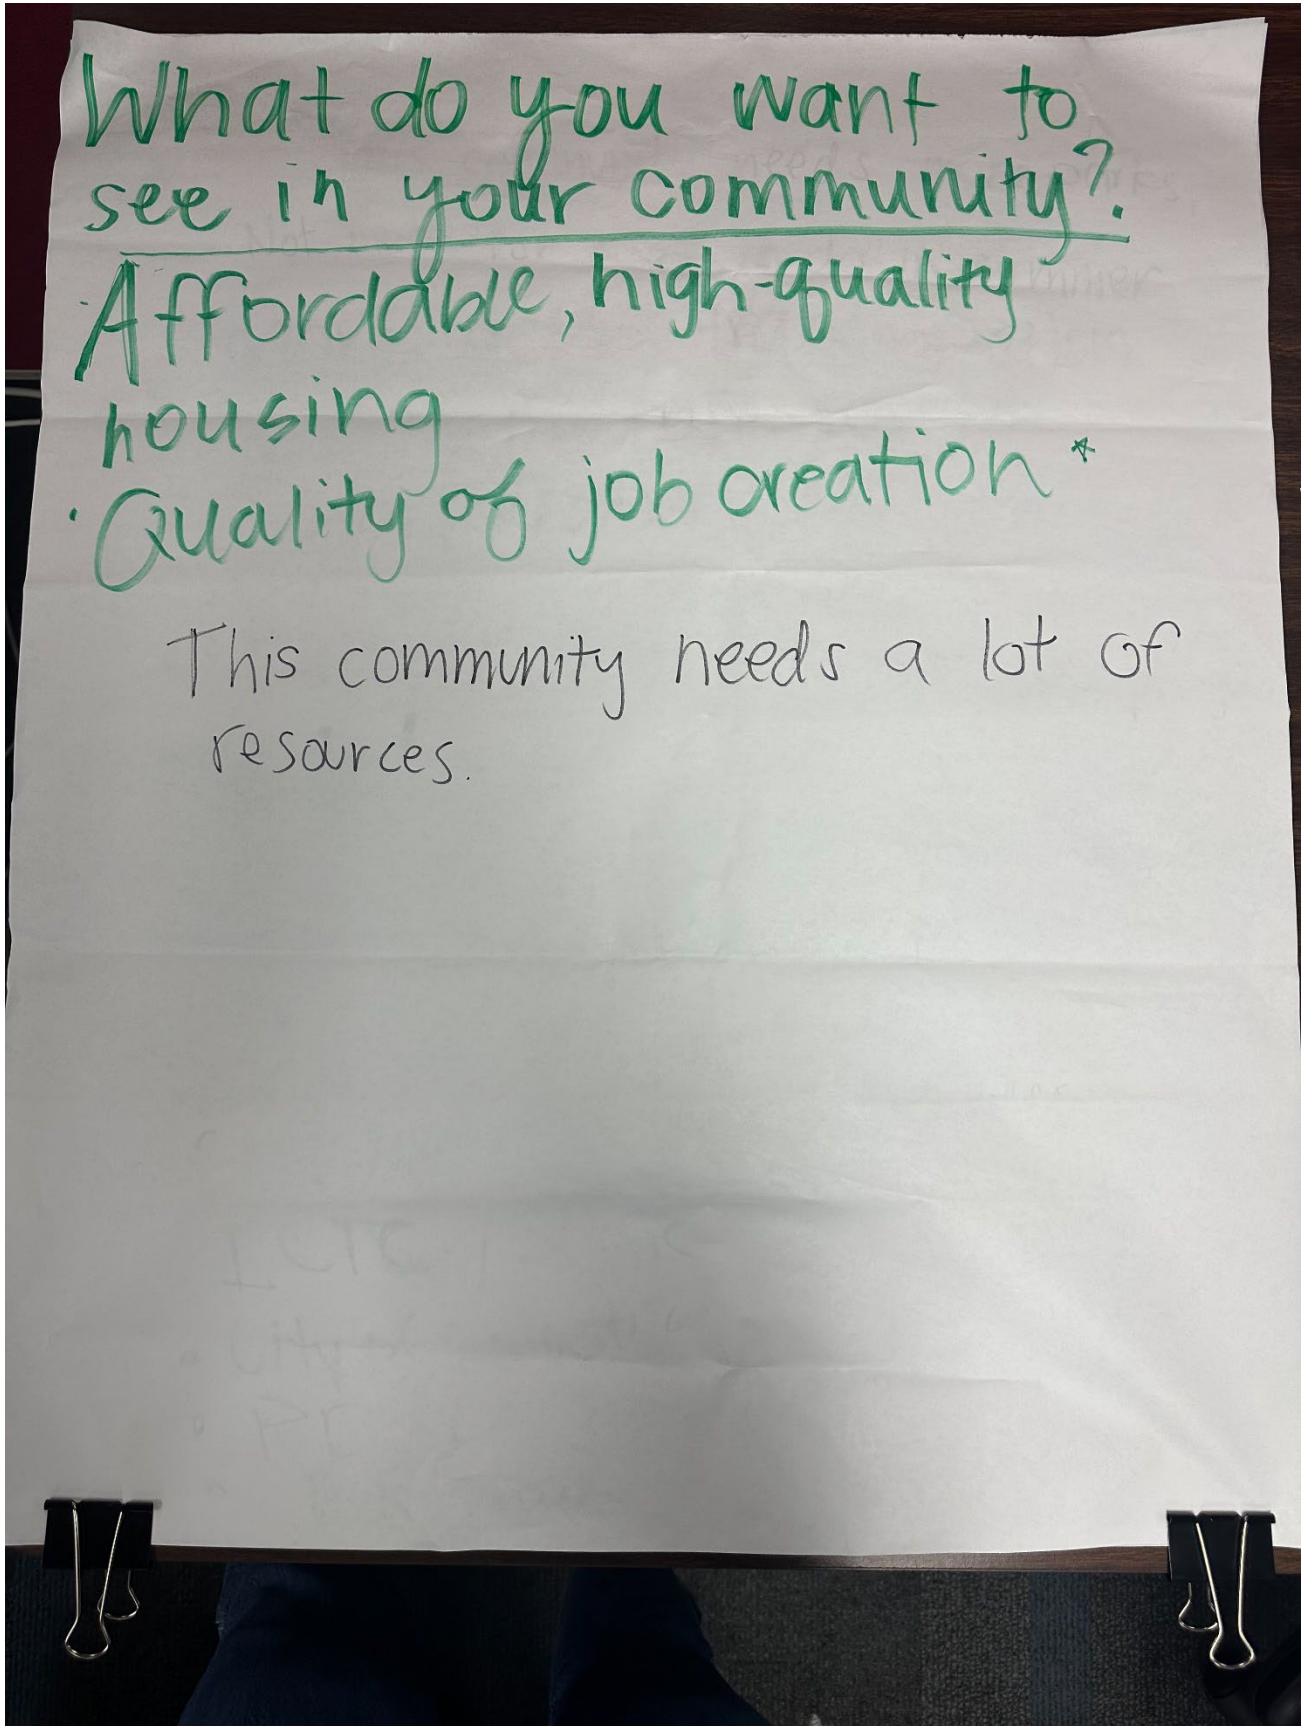 What do you want to
see in your community?
· Affordable, high-quality
housing
· Quality of job creation *
This community needs a lot of
resources.